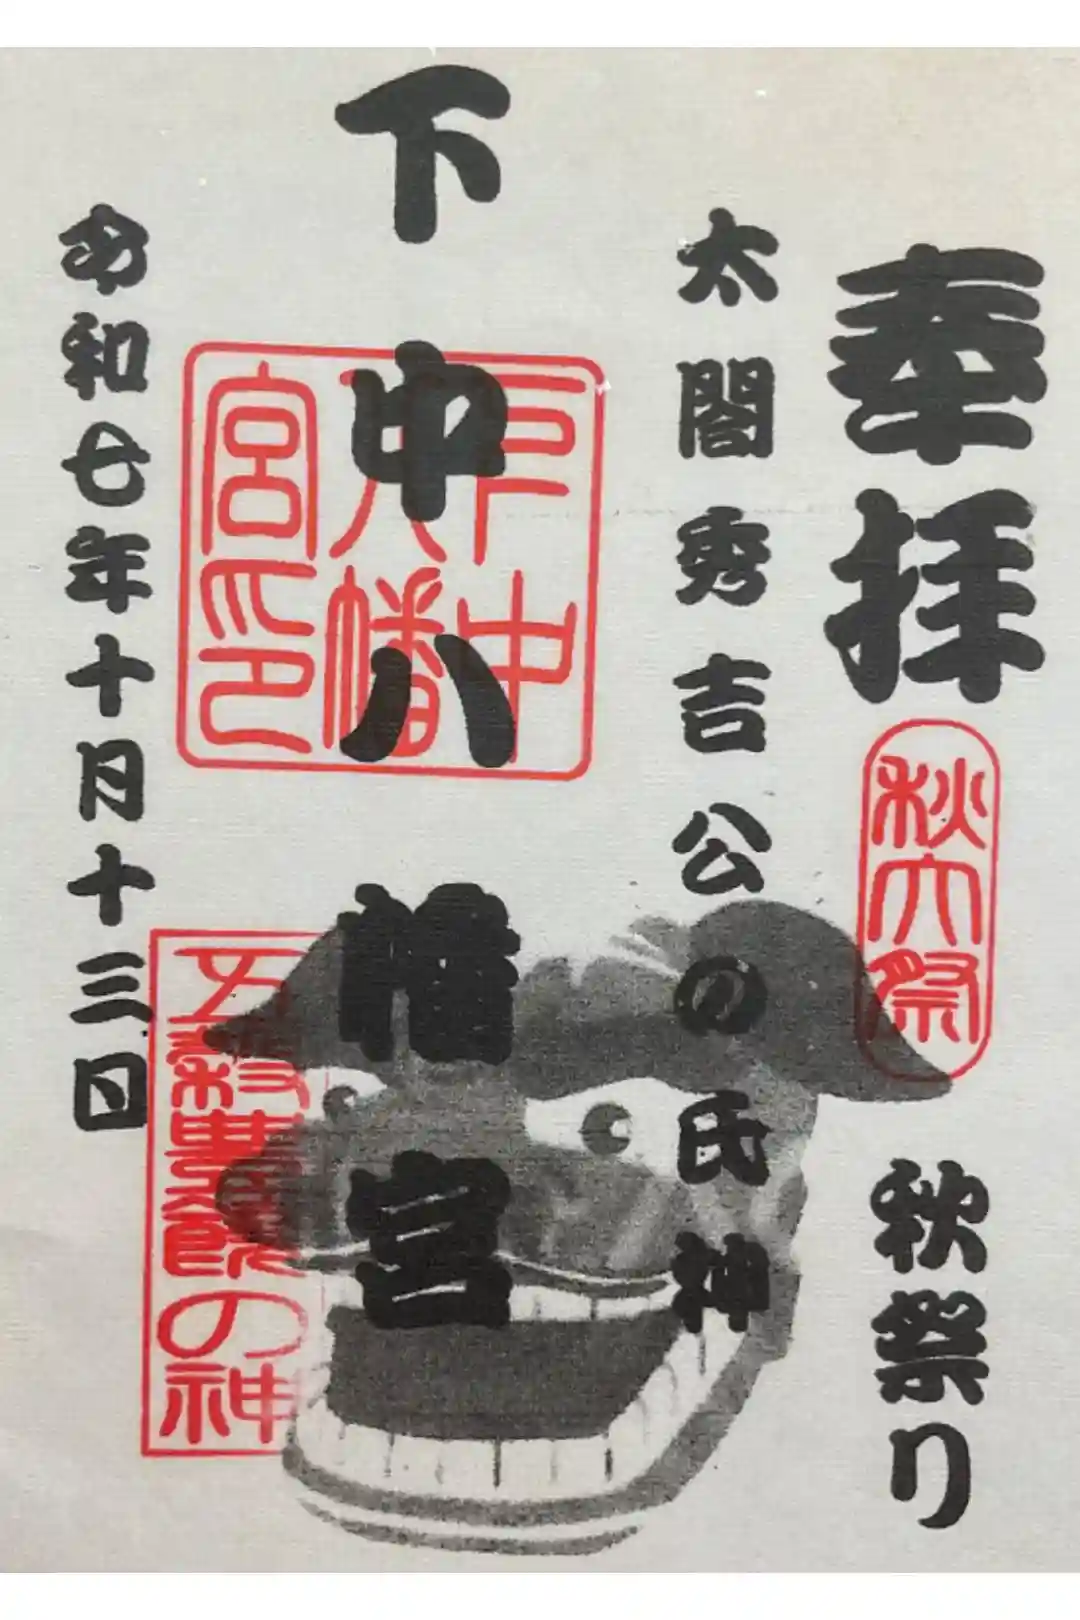 奉拝
秋大祭
秋祭り
太閤秀吉公の氏神
下中八幡宮
下中
八幡
宮印
令和七年十月十三日
の神